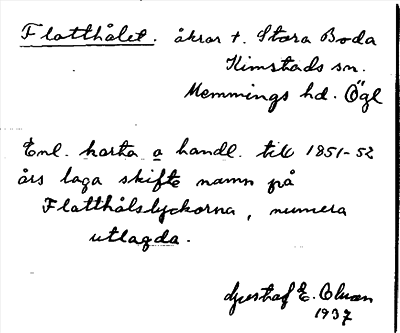 Flatthålet. åkrar t. Stora Boda
Kimstads sn.
Memmings hd. Ögl
Enl. karta o handl. till 1851-52
års laga skifte namn på
Flatthålslyckorna, numera
utlagda.
Gustaf E. Olsson
1937